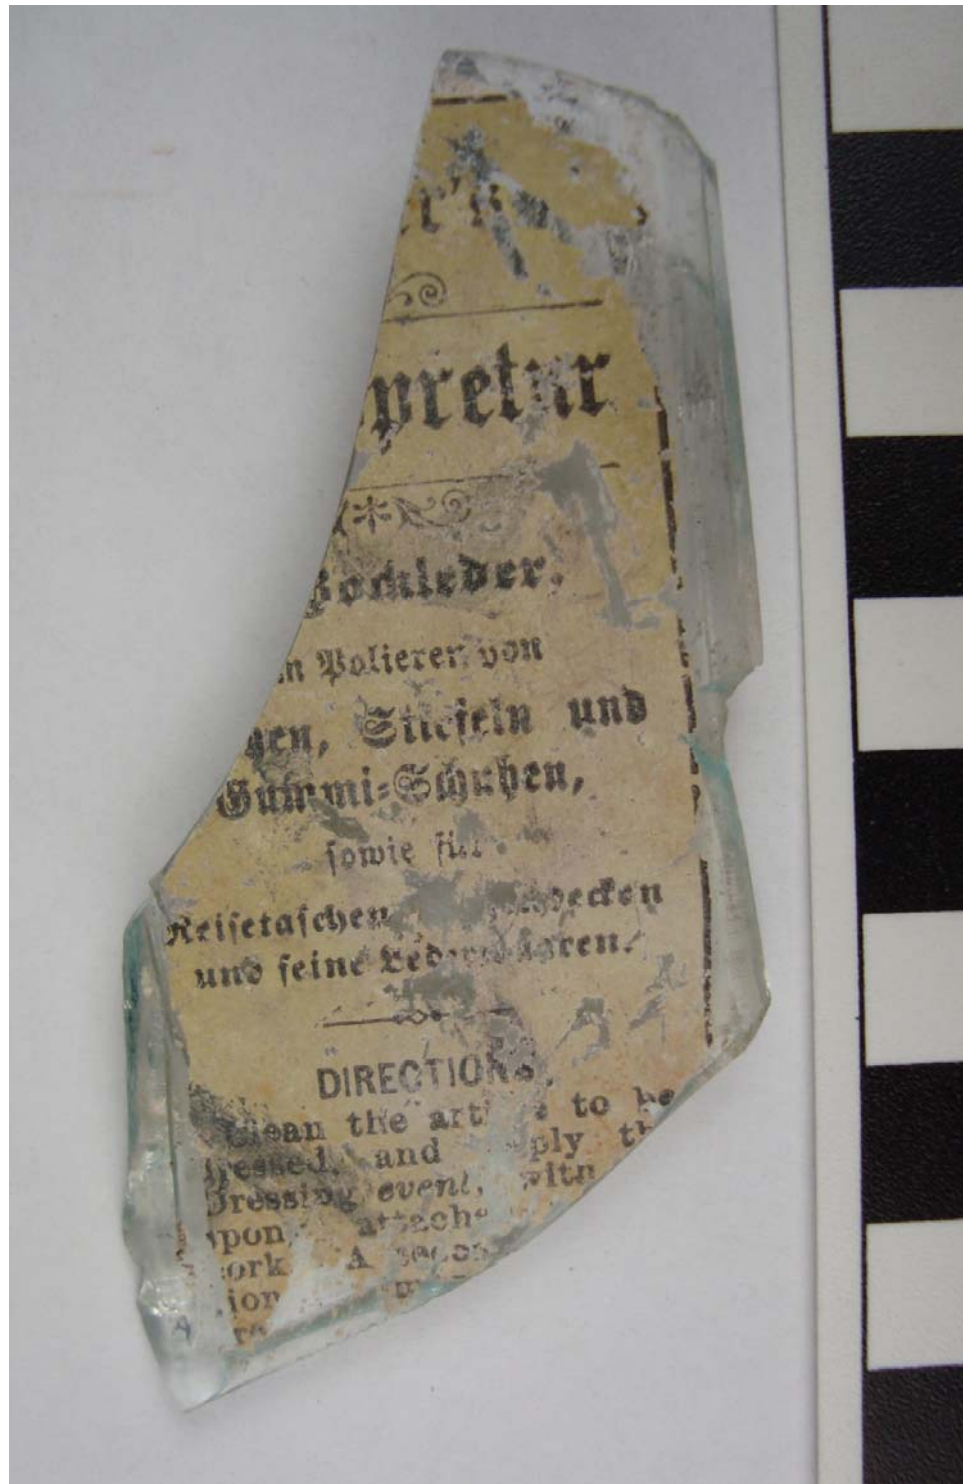 pretur
Bockleder.
m Polieren von
gen, Stiefeln und
Gummi-Schuhen,
sowie für
Reisetaschen, decken
und feine Lederwaaren.
DIRECTIONS.
Clean the art e to be
dressed, and ply th
Dressing evenl, with
upon attache
ork A secon
ion